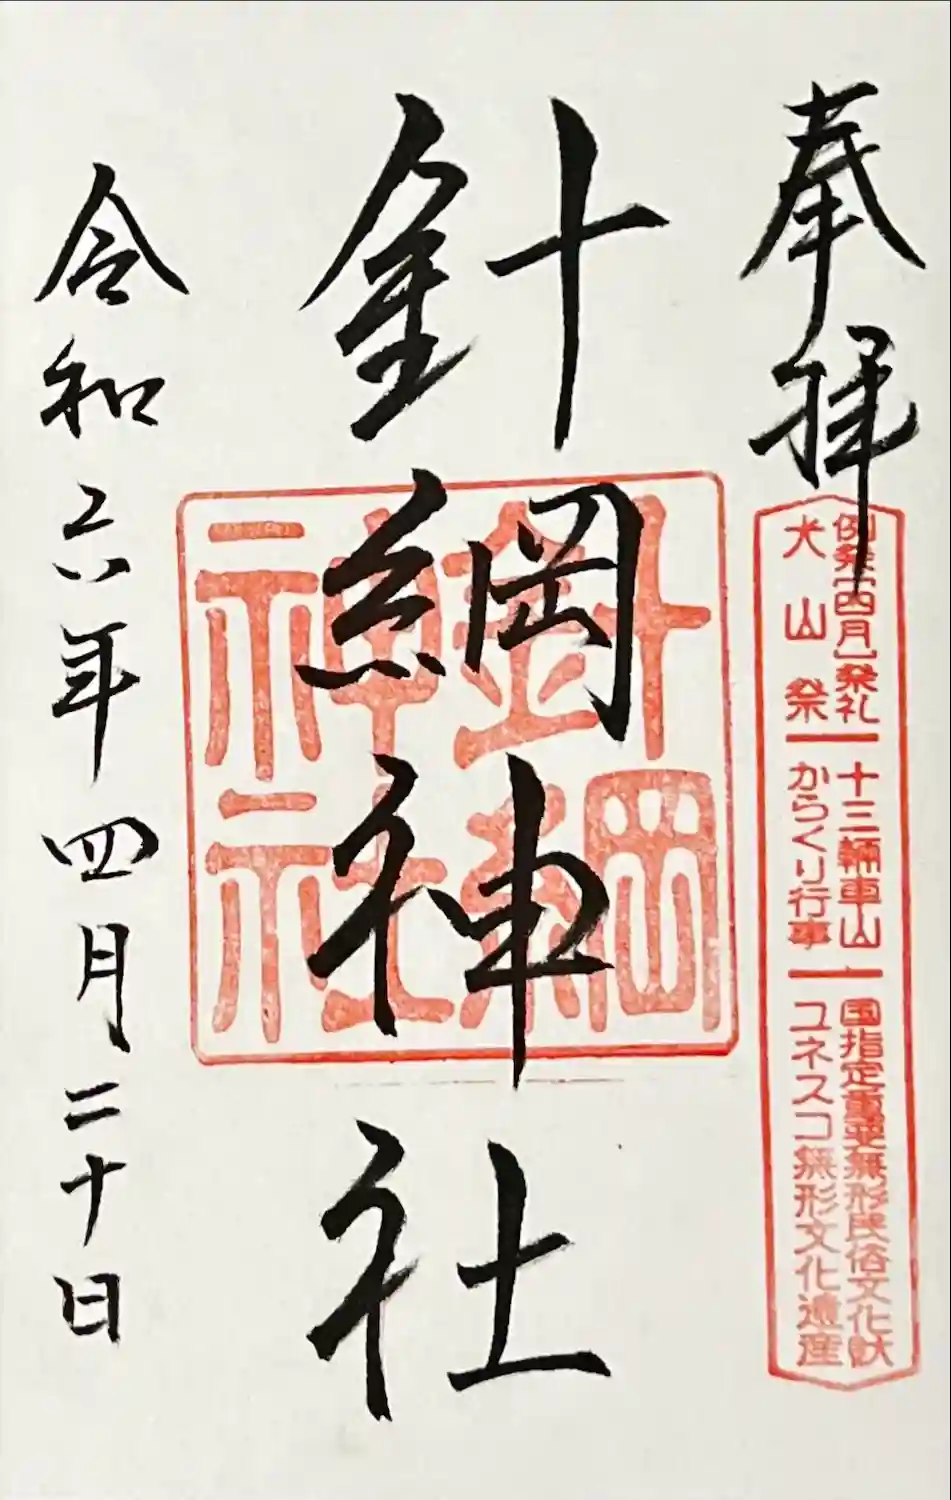 奉拝
例祭(四月)祭礼 十三輛車山 国指定重要無形民俗文化財
犬山祭 からくり行事 ユネスコ無形文化遺産
針綱神社
針綱
神社
令和六年四月二十日